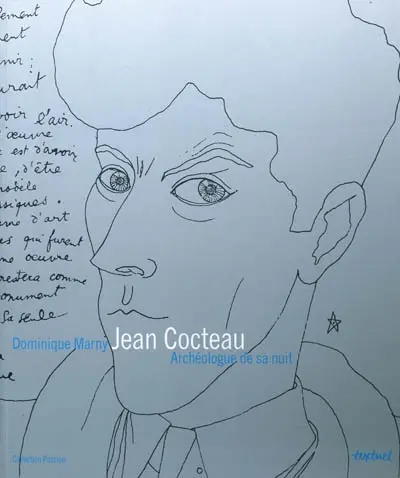 lement
ent
nir :
urait
voir l'air.
l'œuvre
e est d'avoir
e, d'être
modèle
ssiques.
uvre d'art
es qui furent
ne œuvre
restera comme
onument
Sa seule
Dominique Marny Jean Cocteau
Archéologue de sa nuit
Collection Passion
textuel